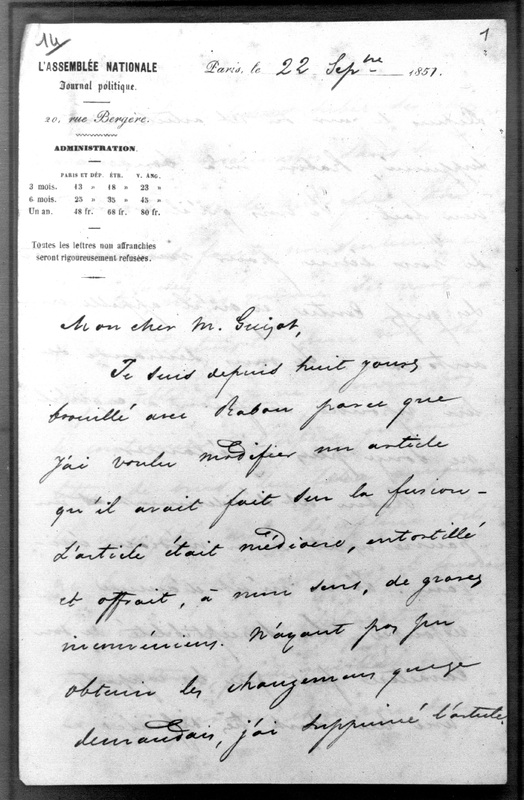 14
1
L'ASSEMBLÉE NATIONALE
Journal politique.
20, rue Bergère.
ADMINISTRATION.
PARIS ET DÉP. ÉTR. V. ANG.
3 mois. 13 » 18 » 23 »
6 mois. 25 » 35 » 45 »
Un an. 48 fr. 68 fr. 80 fr.
Toutes les lettres non affranchies
seront rigoureusement refusées.
Paris, le 22 Sepbre 1851.
Mon cher M. Guizot,
Je suis depuis huit jours
brouillé avec Rabou parce que
j'ai voulu modifier un article
qu'il avait fait sur la fusion -
L'article était médiocre, entortillé
et offrait, à mon sens, de graves
inconvéniens. N'ayant pas pu
obtenir les changemens que je
demandais, j'ai supprimé l'article.